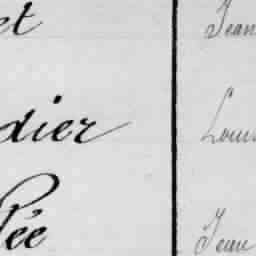 et Jean
dier Louis
Pée Jean